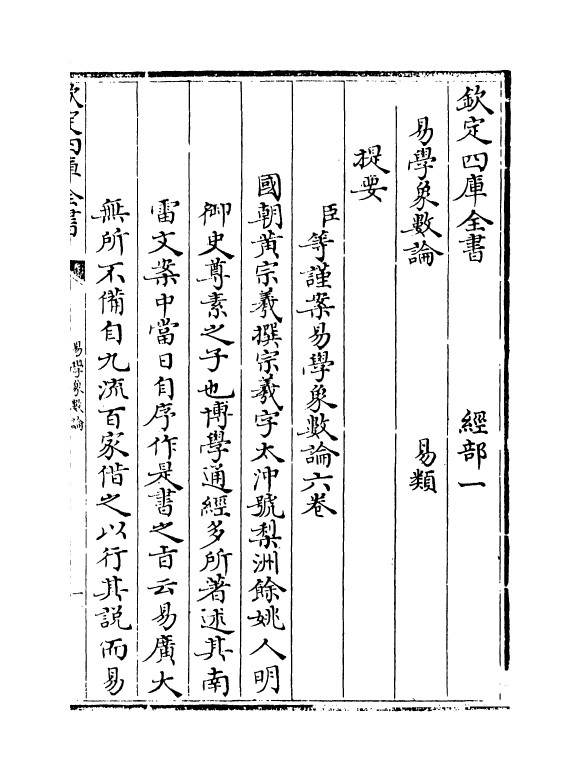 欽定四庫全書　　　　經部一
易學象數論　　　　易類
提要
臣等謹案易學象數論六卷
國朝黄宗羲撰宗羲字太沖號梨洲餘姚人明
御史尊素之子也博學通經多所著述其南
雷文案中當日自序作是書之旨云易廣大
無所不備自九流百家借之以行其説而易
欽定四庫全書
易學象數論
一